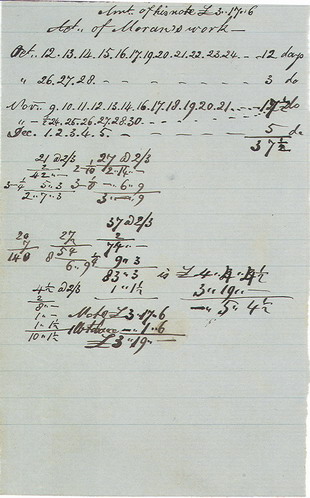 Amt. of his note £3..17..6
Act. of Morans work —
Oct.. 12. 13. 14. 15. 16. 17. 19. 20. 21. 22. 23. 24. — 12 days
" 26. 27. 28. — 3 do
Nov.. 9. 10. 11. 12. 13. 14. 16. 17. 18. 19. 20. 21. — 17½ do
" — ½ 24. 25. 26. 27. 28. 30. —
Dec. 1. 2. 3. 4. 5. — 5 do
37½
21 @ 2/3 27 @ 2/3
42 " — 2 " 14 " —
5 " 3 " 6 " 9
2 " 7 " 3 3 " — " 9
37 @ 2/3
20 27 2
7 2 74 " —
140 8 54 9 " 3
6 " 9 83 " 3 is £4 " 4 " 4½
4½ @ 2/3 1 " 1½ 3 " 19 " —
2 — " 5 " 4½
8 " —
1 " — Note £3 " 17 " 6
1 " 1½ — " 1 " 6
10 " 1½ £3 " 19 " —